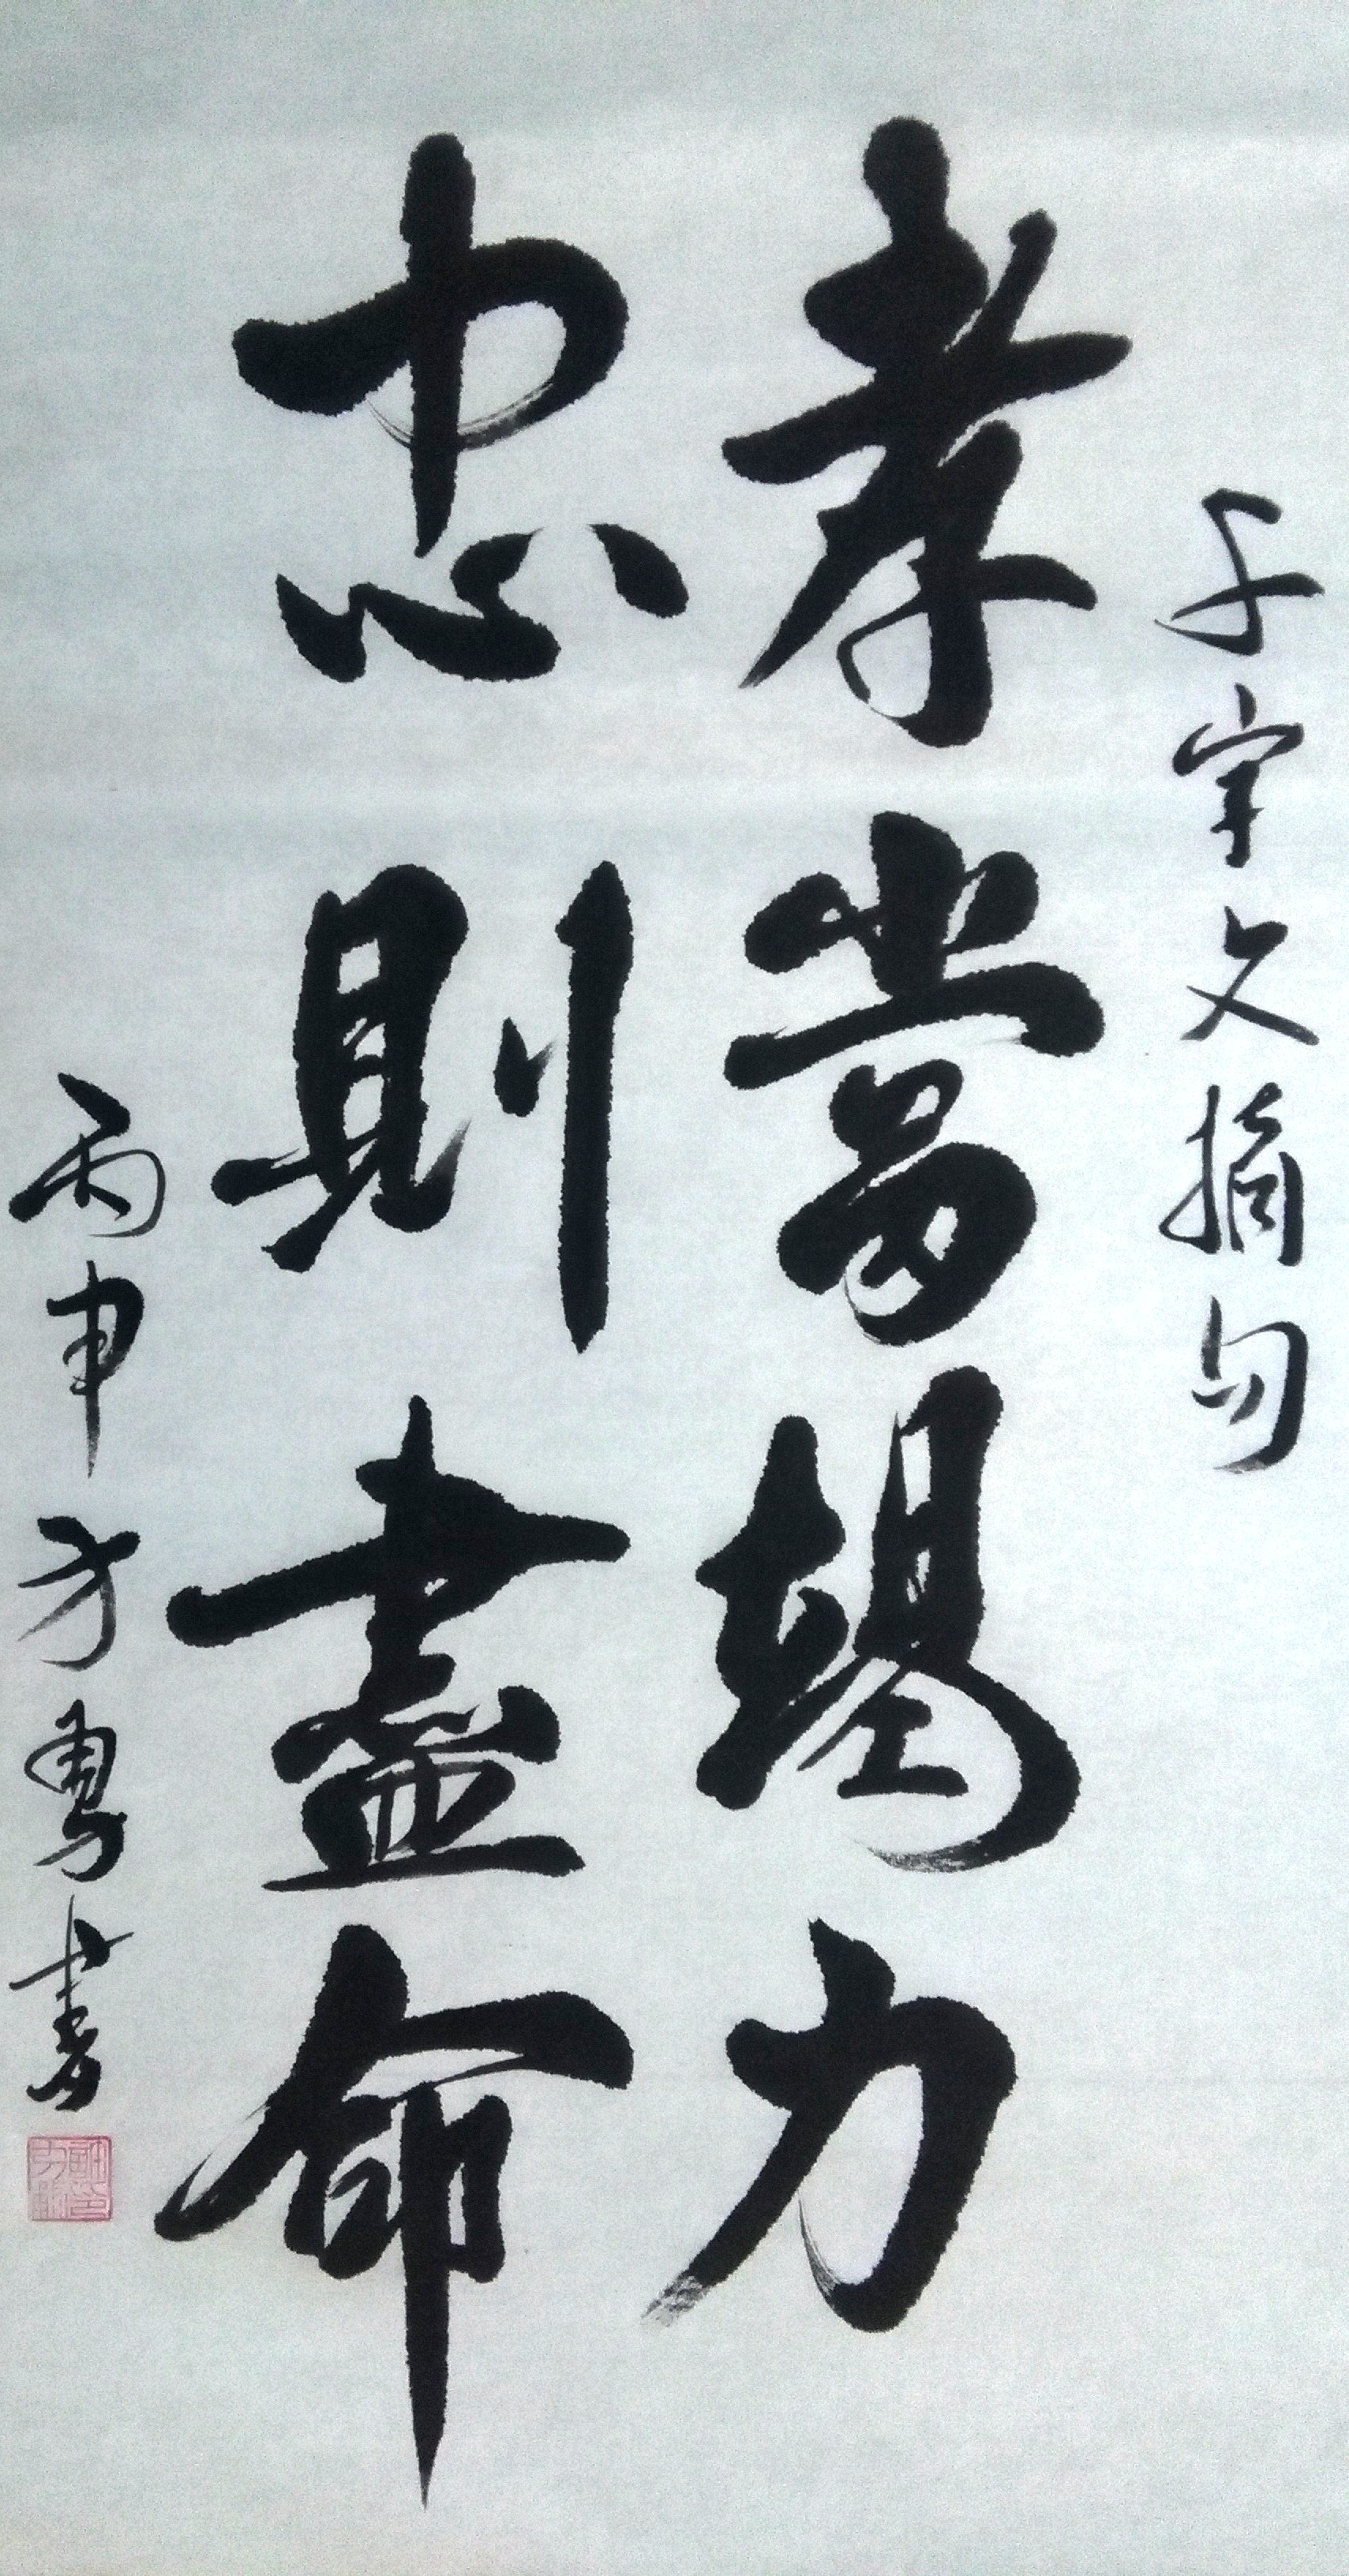 千字文摘句
孝當竭力
忠則盡命
丙申方勇書